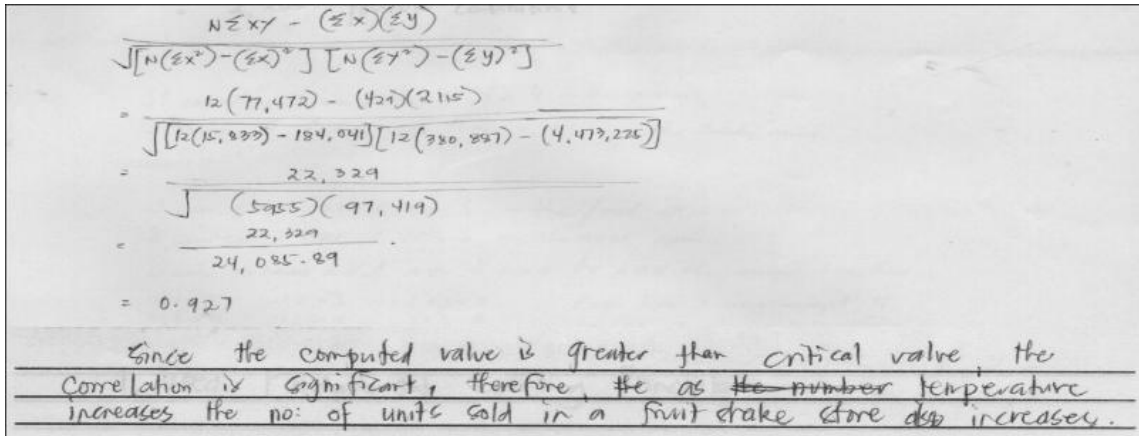 NΣXY - (Σx)(Σy)
√[N(Σx²)-(Σx)²] [N(ΣY²)-(Σy)²]
= 12(77,472) - (429)(2115)
√[12(15,833) - 184,041][12(380,887) - (4,473,225)]
= 22,329
√ (5955)(97,419)
= 22,329
24,085.89
= 0.927
Since the computed value is greater than critical valve, the
Correlation is significant, therefore, the as the number temperature
increases the no: of units sold in a fruit shake store also increases.